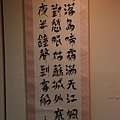 落烏啼霜滿天江楓
對愁眠姑蘇城外
夜半鐘聲到客船